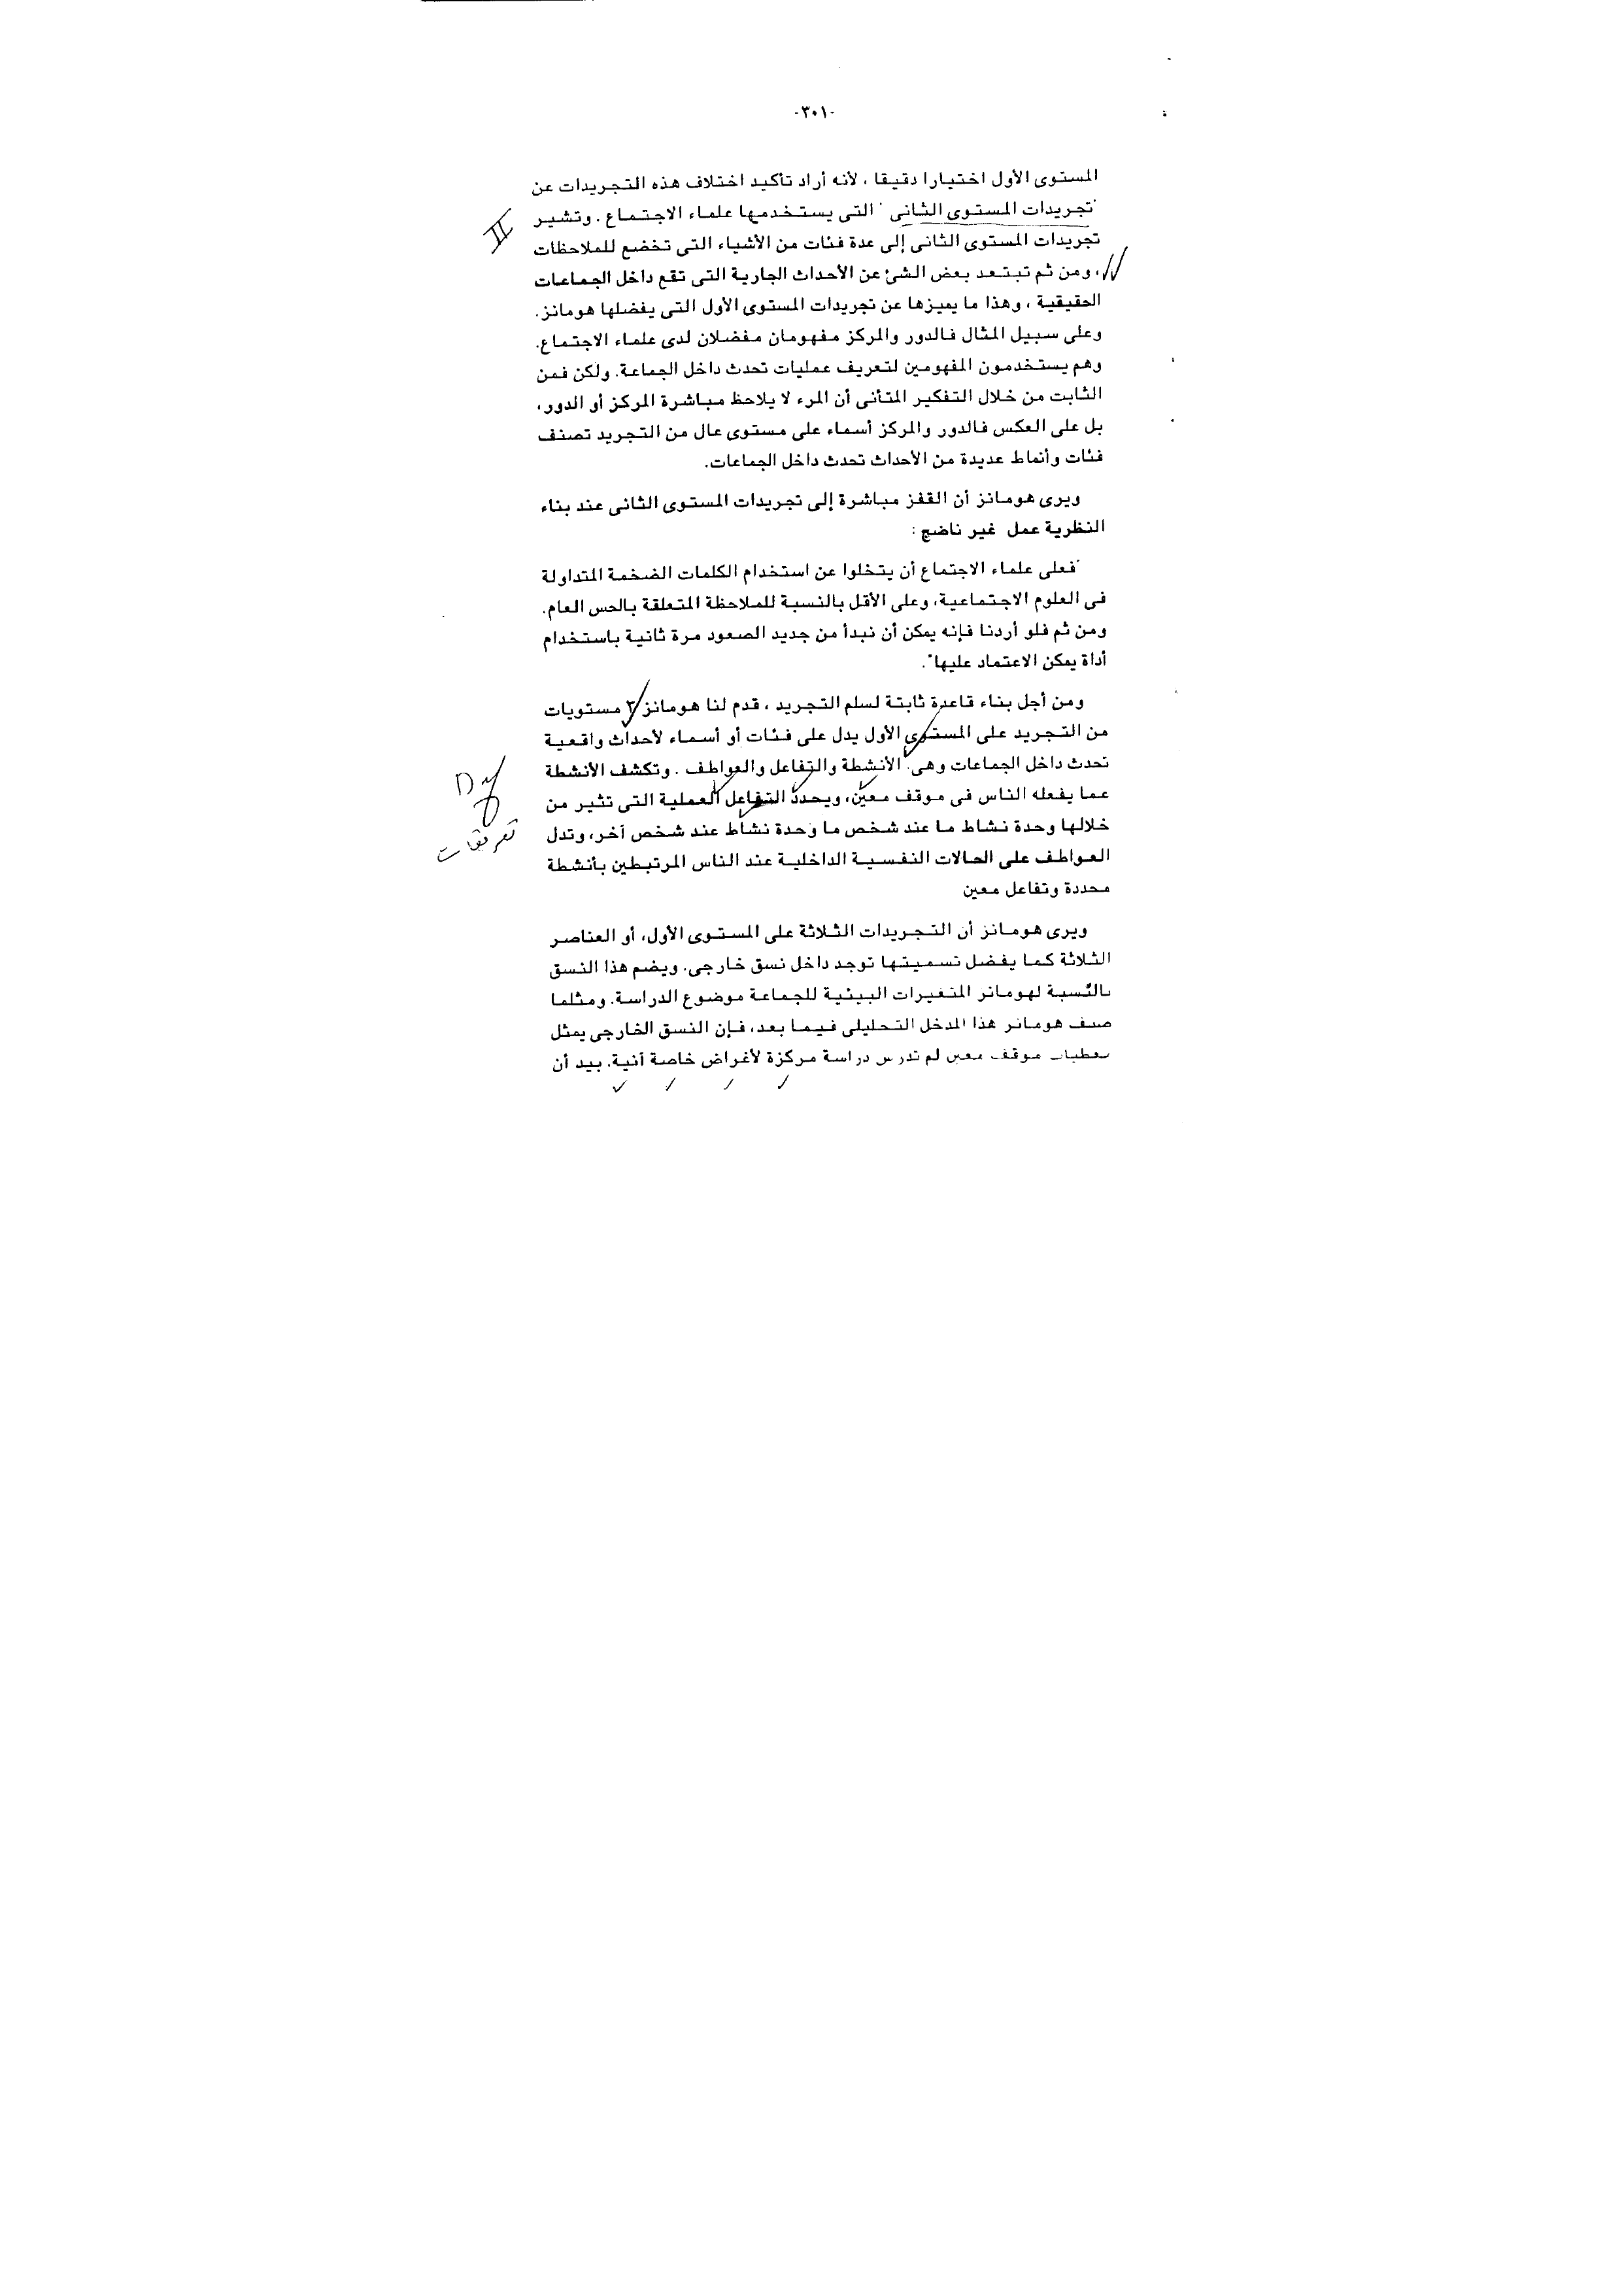 -٣٠١-
المستوى الأول اختيارا دقيقا ، لأنه أراد تأكيد اختلاف هذه التجريدات عن
"تجريدات المستوى الثانى " التى يستخدمها علماء الاجتماع . وتشير
II
تجريدات المستوى الثانى إلى عدة فئات من الأشياء التى تخضع للملاحظات
، ومن ثم تبتعد بعض الشئ عن الأحداث الجارية التى تقع داخل الجماعات
الحقيقية ، وهذا ما يميزها عن تجريدات المستوى الأول التى يفضلها هومانز.
وعلى سبيل المثال فالدور والمركز مفهومان مفضلان لدى علماء الاجتماع.
وهم يستخدمون المفهومين لتعريف عمليات تحدث داخل الجماعة. ولكن فمن
الثابت من خلال التفكير المتأنى أن المرء لا يلاحظ مباشرة المركز أو الدور،
بل على العكس فالدور والمركز أسماء على مستوى عال من التجريد تصنف
فئات وأنماط عديدة من الأحداث تحدث داخل الجماعات.
ويرى هومانز أن القفز مباشرة إلى تجريدات المستوى الثانى عند بناء
النظرية عمل غير ناضج :
"فعلى علماء الاجتماع أن يتخلوا عن استخدام الكلمات الضخمة المتداولة
فى العلوم الاجتماعية، وعلى الأقل بالنسبة للملاحظة المتعلقة بالحس العام.
ومن ثم فلو أردنا فإنه يمكن أن نبدأ من جديد الصعود مرة ثانية باستخدام
أداة يمكن الاعتماد عليها".
ومن أجل بناء قاعدة ثابتة لسلم التجريد ، قدم لنا هومانز ٣ مستويات
من التجريد على المستوى الأول يدل على فئات أو أسماء لأحداث واقعية
تحدث داخل الجماعات وهى : الأنشطة والتفاعل والعواطف . وتكشف الأنشطة
عما يفعله الناس فى موقف معين، ويحدد التفاعل العملية التى تثير من
خلالها وحدة نشاط ما عند شخص ما وحدة نشاط عند شخص آخر، وتدل
تعريفات
العواطف على الحالات النفسية الداخلية عند الناس المرتبطين بأنشطة
محددة وتفاعل معين
ويرى هومانز أن التجريدات الثلاثة على المستوى الأول، أو العناصر
الثلاثة كما يفضل تسميتها توجد داخل نسق خارجى. ويضم هذا النسق
بالنسبة لهومانز المتغيرات البيئية للجماعة موضوع الدراسة. ومثلما
صنف هومانز هذا المدخل التحليلى فيما بعد، فإن النسق الخارجى يمثل
معطيات موقف معين لم تدرس دراسة مركزة لأغراض خاصة آنية. بيد أن